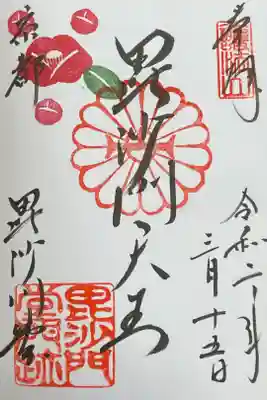 奉拝
令和二年
三月十五日
毘沙門天王
京都
毘沙門堂
毘沙門